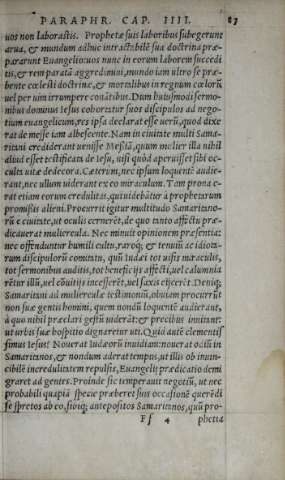 PARAPHR. CAP. IIII. 83
uos non laborastis. Prophetæ suis laboribus subegerunt
arua, & mundum adhuc intractabilē sua doctrina præ=
pararunt Euangelio: uos nunc in eorum laborem succedi
tis, & rem parata aggredimini, mundo iam ultro se præ=
bente cœlesti doctrinæ, & mortalibus in regnum cœlorū
uel per uim irrumpere conātibus. Dum huiusmodi sermo=
nibus dominus Iesus cohortatur suos discipulos ad nego=
tium euangelicum, res ipsa declarat esse uerū, quod dixe
rat de messe iam albescente. Nam in ciuitate multi Sama=
ritani crediderant uenisse Messiā, quum mulier illa nihil
aliud esset testificata de Iesu, nisi quòd aperuisset sibi oc=
culta uitæ dedecora. Cæterum, nec ipsum loquentē audie=
rant, nec ullum uiderant ex eo miraculum. Tam prona e=
rat etiam eorum credulitas, qui uidebātur à prophetarum
promissis alieni. Procurrit igitur multitudo Samaritano=
rū e ciuitate, ut oculis cernerēt, de quo tanto affectu præ=
dicauerat muliercula. Nec minuit opinionem præsentia:
nec offenduntur humili cultu, raroq; & tenuiū ac idiota=
rum discipulorū comitatu, quū Iudæi tot uisis miraculis,
tot sermonibus auditis, tot beneficijs affecti, uel calumnia
rētur illū, uel cōuitijs incesserēt, uel saxis eijcerēt. Deniq;
Samaritani ad mulierculæ testimoniū, obuiam procurrūt
non suæ gentis homini, quem nondū loquentē audierant,
à quo nihil præclari gestū uiderāt: & precibus inuitant:
ut urbis suæ hospitio dignaretur uti. Quid autē clementis
simus Iesus? Nouerat Iudæorū inuidiam: nouerat odiū in
Samaritanos, & nondum aderat tempus, ut illis ob inuin=
cibilē incredulitatem repulsis, Euangelij prædicatio demi
graret ad gentes. Proinde sic temperauit negotiū, ut nec
probabili quapiā specie præberet suis occasionē querēdi
se spretos ab eo, sibiq; antepositos Samaritanos, quū pro=
Ff 4 phetia